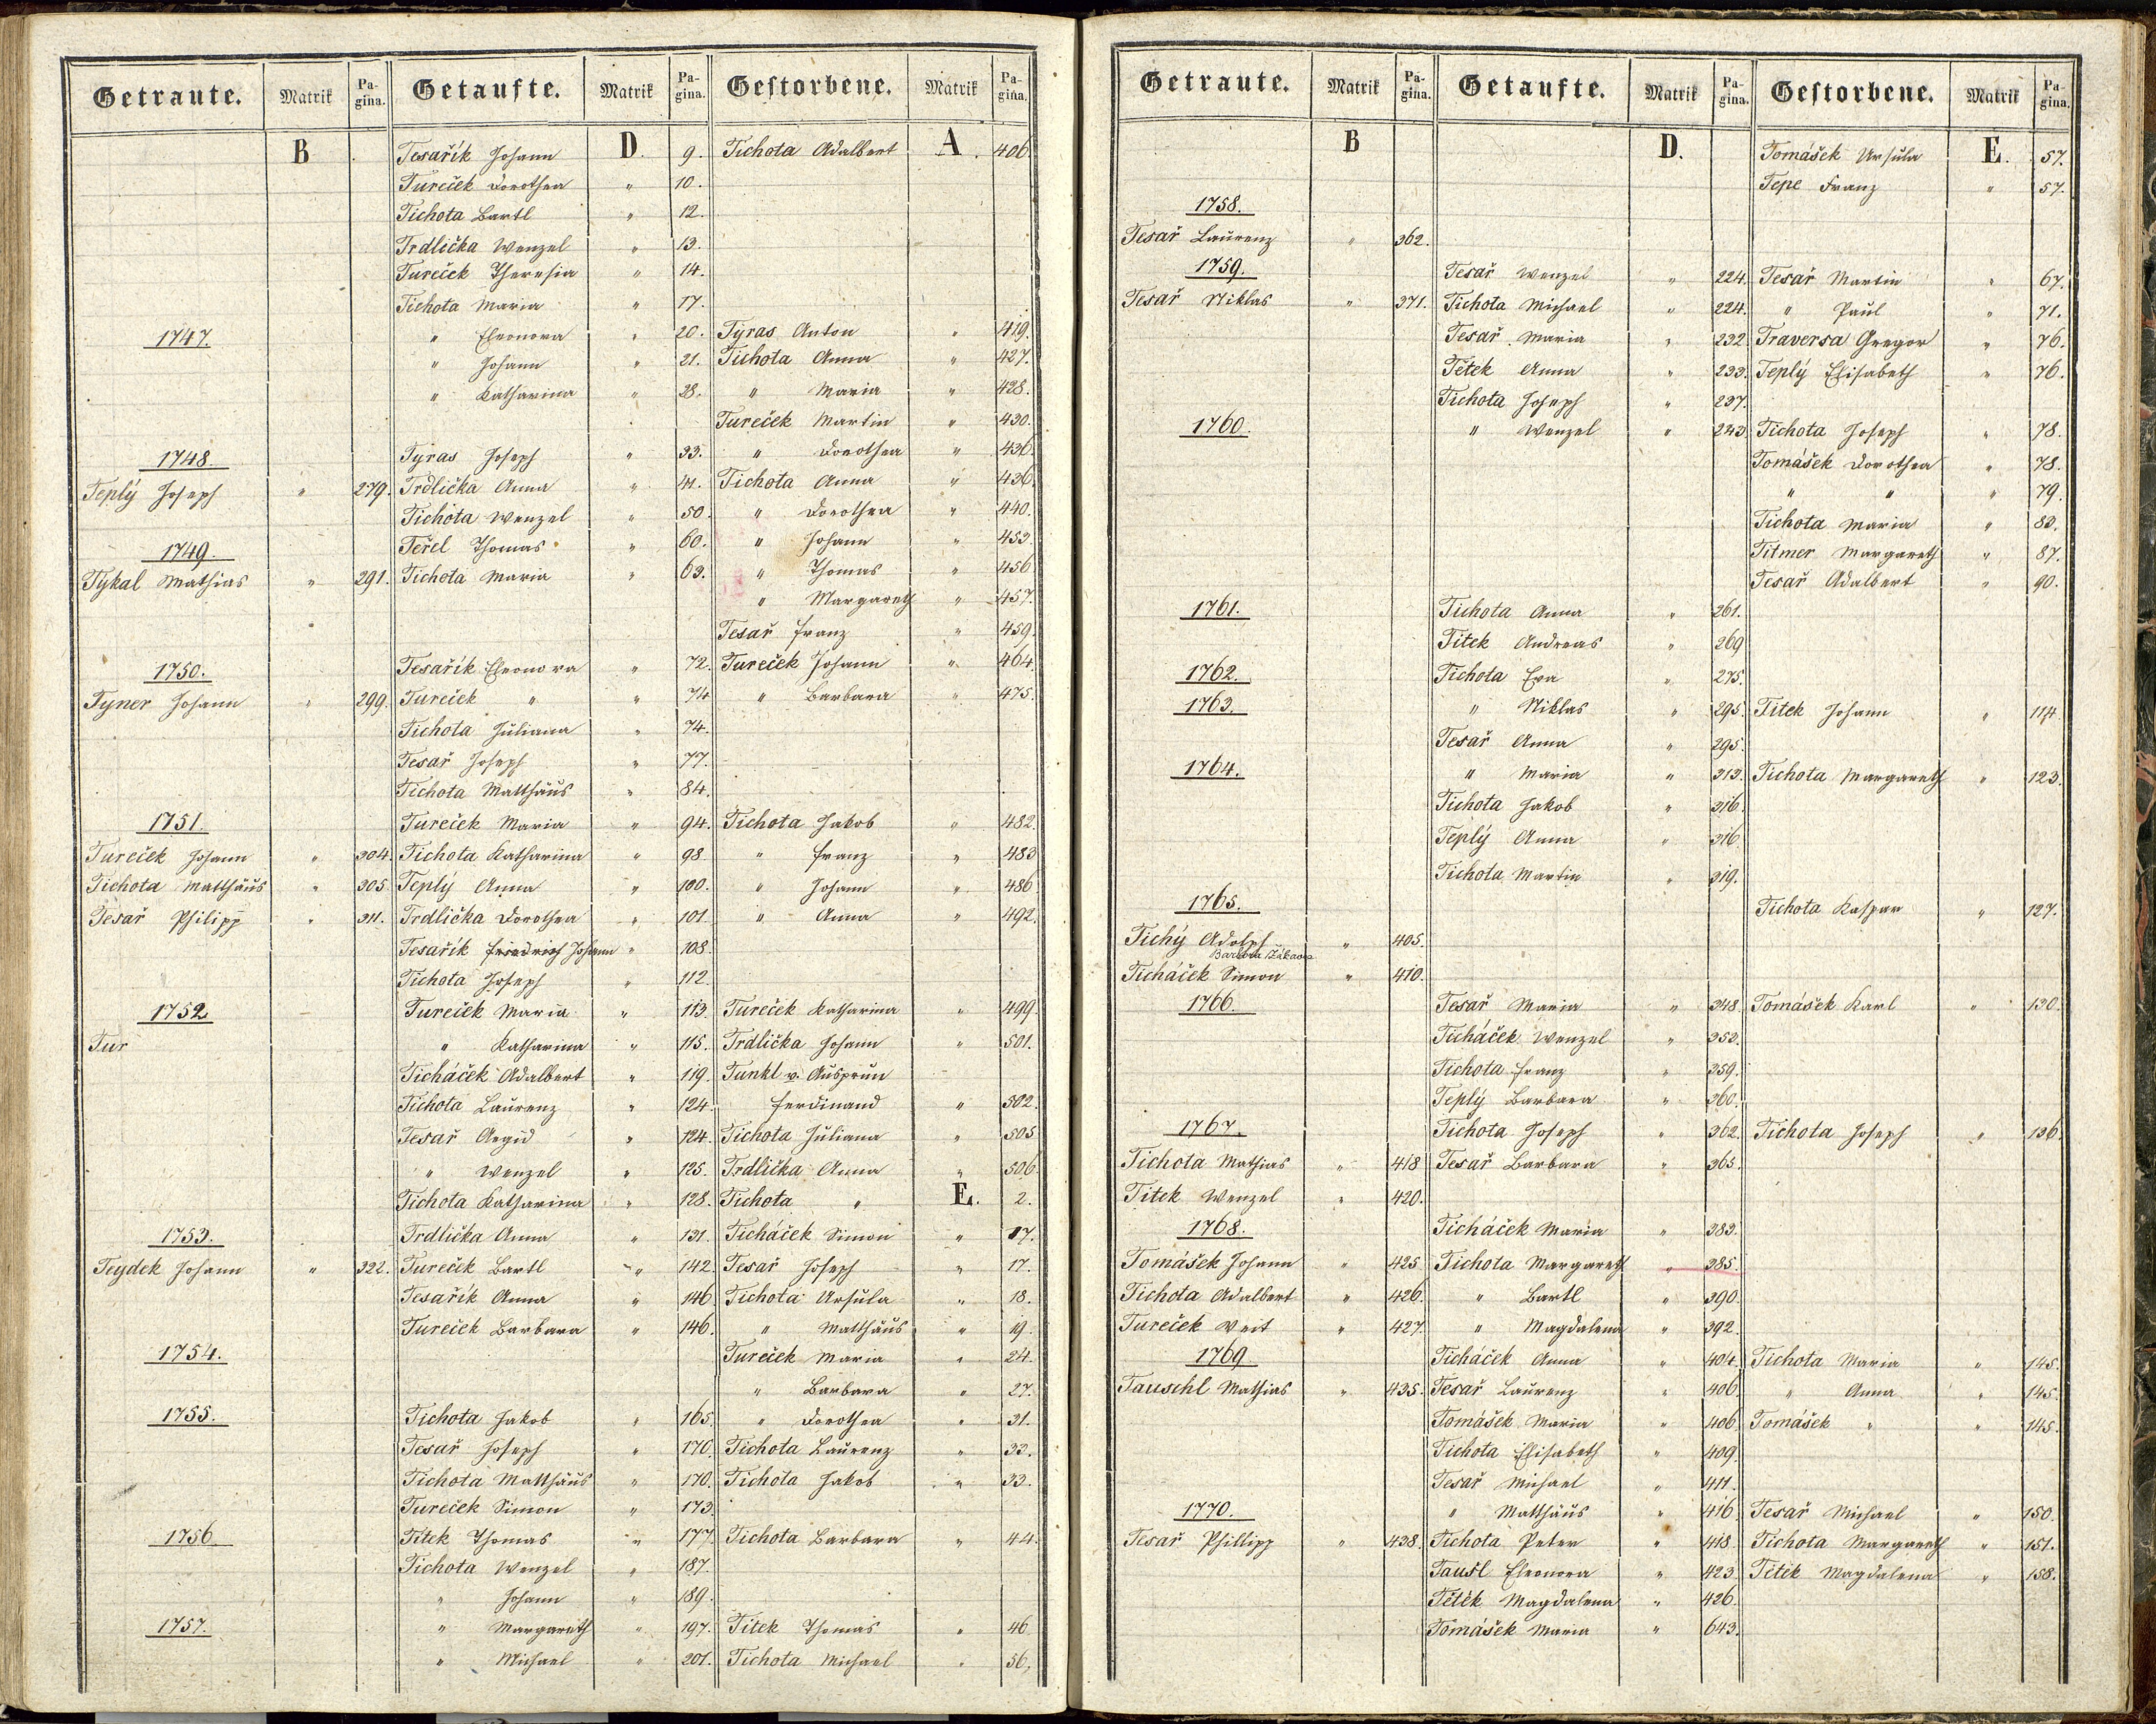 Getraute. Matrik Pagina. Getaufte. Matrik Pagina. Gestorbene. Matrik Pagina.
B Tesařík Johann D. 9. Tichota Adalbert A. 406.
Tureček Dorothea " 10.
Tichota Bartl " 12.
Trdlička Wenzel " 13.
Tureček Theresia " 14.
Tichota Maria " 17.
1747. " Eleonora " 20. Tyras Anton " 419.
" Johann " 21. Tichota Anna " 427.
" Katharina " 28. " Maria " 428.
Tureček Martin " 430.
1748. Tyras Joseph " 33. " Dorothea " 436.
Teplý Joseph " 279. Trdlička Anna " 41. Tichota Anna " 436.
Tichota Wenzel " 50. " Dorothea " 440.
1749. Teřel Thomas " 60. " Johann " 453
Tykal Mathias " 291. Tichota Maria " 63. " Thomas " 456
" Margareth " 457.
Tesař Franz " 459.
1750. Tesařík Eleonora " 72. Tureček Johann " 464.
Tyner Johann " 299. Tureček " " 74 " Barbara " 475.
Tichota Juliana " 74.
Tesař Joseph " 77.
Tichota Matthäus " 84.
1751. Tureček Maria " 94. Tichota Jakob " 482.
Tureček Johann " 304. Tichota Katharina " 98. " Franz " 483
Tichota Matthäus " 305. Teplý Anna " 100. " Johann " 486
Tesař Philipp " 311. Trdlička Dorothea " 101. " Anna " 492.
Tesařík Friedrich Johann " 108.
Tichota Joseph " 112.
1752 Tureček Maria " 113. Tureček Katharina " 499.
Tur " Katharina " 115. Trdlička Johann " 501.
Ticháček Adalbert " 119. Tunkl v. Ausprun
Tichota Laurenz " 124. Ferdinand " 502.
Tesař Aegid " 124. Tichota Juliana " 505
" Wenzel " 125. Trdlička Anna " 506.
Tichota Katharina " 128. Tichota " E. 2.
1753. Trdlička Anna " 131. Ticháček Simon " 17.
Teydek Johann " 322. Tureček Bartl " 142 Tesař Joseph " 17.
Tesařík Anna " 146 Tichota Ursula " 18.
Tureček Barbara " 146. " Matthäus " 19.
1754. Tureček Maria " 24.
" Barbara " 27.
1755. Tichota Jakob " 165. " Dorothea " 31.
Tesař Joseph " 170. Tichota Laurenz " 33.
Tichota Matthäus " 170. Tichota Jakob " 33.
Tureček Simon " 173.
1756. Titek Thomas " 177. Tichota Barbara " 44.
Tichota Wenzel " 187.
" Johann " 189.
1757. " Margareth " 197. Titek Thomas " 46
" Michael " 201. Tichota Michael " 56.
Getraute. Matrik Pagina. Getaufte. Matrik Pagina. Gestorbene. Matrik Pagina.
B D. Tomášek Ursula E. 57.
Tepe Franz " 57.
1758.
Tesař Laurenz " 362.
1759. Tesař Wenzel " 224. Tesař Martin " 67.
Tesař Niklas " 371. Tichota Michael " 224. " Paul " 71.
Tesař Maria " 232. Traversa Gregor " 76.
Tětek Anna " 233. Teplý Elisabeth " 76.
Tichota Joseph " 237.
1760. " Wenzel " 243 Tichota Joseph " 78.
Tomášek Dorothea " 78.
" " " 79.
Tichota Maria " 83.
Titmer Margareth " 87.
Tesař Adalbert " 90.
1761. Tichota Anna " 261.
Titek Andreas " 269
1762. Tichota Eva " 275.
1763. " Niklas " 295. Titek Johann " 114
Tesař Anna " 295.
1764. " Maria " 313. Tichota Margareth " 123.
Tichota Jakob " 316.
Teplý Anna " 316.
Tichota Martin " 319.
1765. Tichota Kaspar " 127.
Tichý Adolph " 405.
Barbora
Ticháček Simon " 410.
1766. Tesař Maria " 348. Tomášek Karl " 130.
Ticháček Wenzel " 353.
Tichota Franz " 359.
Teplý Barbara " 360.
1767. Tichota Joseph " 362. Tichota Joseph " 136.
Tichota Mathias " 418 Tesař Barbara " 365.
Titek Wenzel " 420.
1768. Ticháček Maria " 383.
Tomášek Johann " 425 Tichota Margareth " 385.
Tichota Adalbert " 426. " Bartl " 390.
Tureček Veit " 427. " Magdalena " 392.
1769 Ticháček Anna " 404. Tichota Maria " 145.
Tauschl Mathias " 435. Tesař Laurenz " 406. " Anna " 145.
Tomášek Maria " 406. Tomášek " " 145.
Tichota Elisabeth " 409.
Tesař Michael " 411.
1770. " Matthäus " 416. Tesař Michael " 150.
Tesař Phillipp " 438. Tichota Peter " 418. Tichota Margareth " 151.
Tausl Eleonora " 423 Titek Magdalena " 158.
Tětěk Magdalena " 426.
Tomášek Maria " 643.